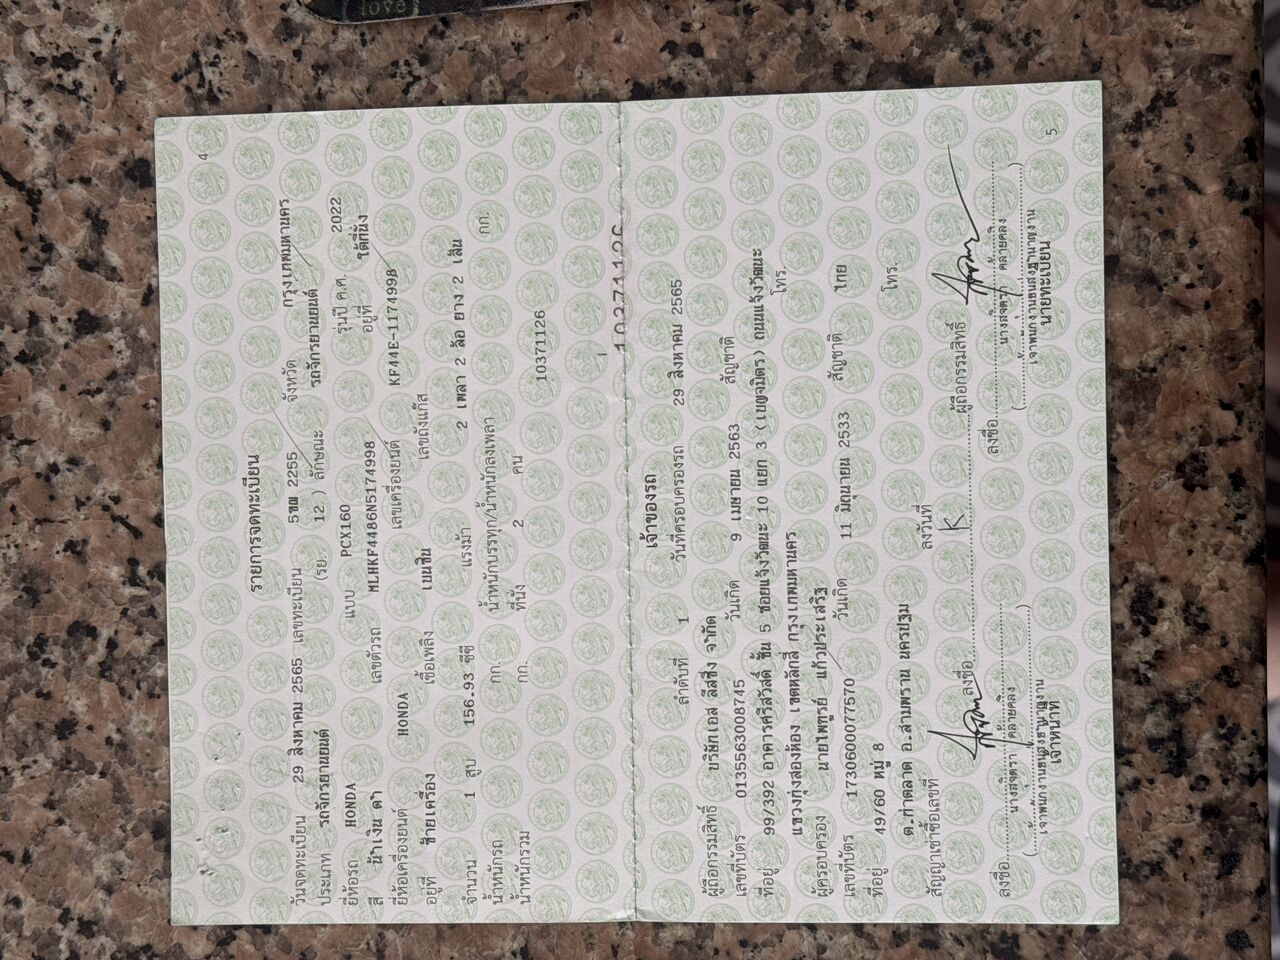 love
4
รายการจดทะเบียน
วันจดทะเบียน 29 สิงหาคม 2565 เลขทะเบียน 5ขฒ 2255 จังหวัด กรุงเทพมหานคร
ประเภท รถจักรยานยนต์ (รย. 12 ) ลักษณะ รถจักรยานยนต์
ยี่ห้อรถ HONDA แบบ PCX160 รุ่นปี ค.ศ. 2022
สี น้ำเงิน ดำ เลขตัวรถ MLHKF4486N5174998 อยู่ที่ ใต้ที่นั่ง
ยี่ห้อเครื่องยนต์ HONDA เลขเครื่องยนต์ KF44E-1174998
อยู่ที่ ซ้ายเครื่อง เชื้อเพลิง เบนซิน เลขถังแก๊ส
จำนวน 1 สูบ 156.93 ซีซี แรงม้า 2 เพลา 2 ล้อ ยาง 2 เส้น
น้ำหนักรถ กก. น้ำหนักบรรทุก/น้ำหนักลงเพลา กก.
น้ำหนักรวม กก. ที่นั่ง 2 คน
10371126
เจ้าของรถ
ลำดับที่ 1 วันที่ครอบครองรถ 29 สิงหาคม 2565
ผู้ถือกรรมสิทธิ์ บริษัทเอส ลีสซิ่ง จำกัด
เลขที่บัตร 0135563008745 วันเกิด 9 เมษายน 2563 สัญชาติ
ที่อยู่ 99/392 อาคารศรีสวัสดิ์ ชั้น 5 ซอยแจ้งวัฒนะ 10 แยก 3 (เบญจมิตร) ถนนแจ้งวัฒนะ
แขวงทุ่งสองห้อง เขตหลักสี่ กรุงเทพมหานคร โทร.
ผู้ครอบครอง นายไพฑูรย์ แก้วประเสริฐ
เลขที่บัตร 1730600077570 วันเกิด 11 มิถุนายน 2533 สัญชาติ ไทย
ที่อยู่ 49/60 หมู่ 8
ต.ท่าตลาด อ.สามพราน นครปฐม โทร.
สัญญาเช่าซื้อเลขที่ ลงวันที่
ลงชื่อ K ผู้ถือกรรมสิทธิ์
ลงชื่อ ลงชื่อ
นางสจิตรา คล้ายคลิ้ง นางสจิตรา คล้ายคลิ้ง
เจ้าพนักงานขนส่งชำนาญงาน เจ้าพนักงานขนส่งชำนาญงาน
เจ้าหน้าที่ นายทะเบียน
5